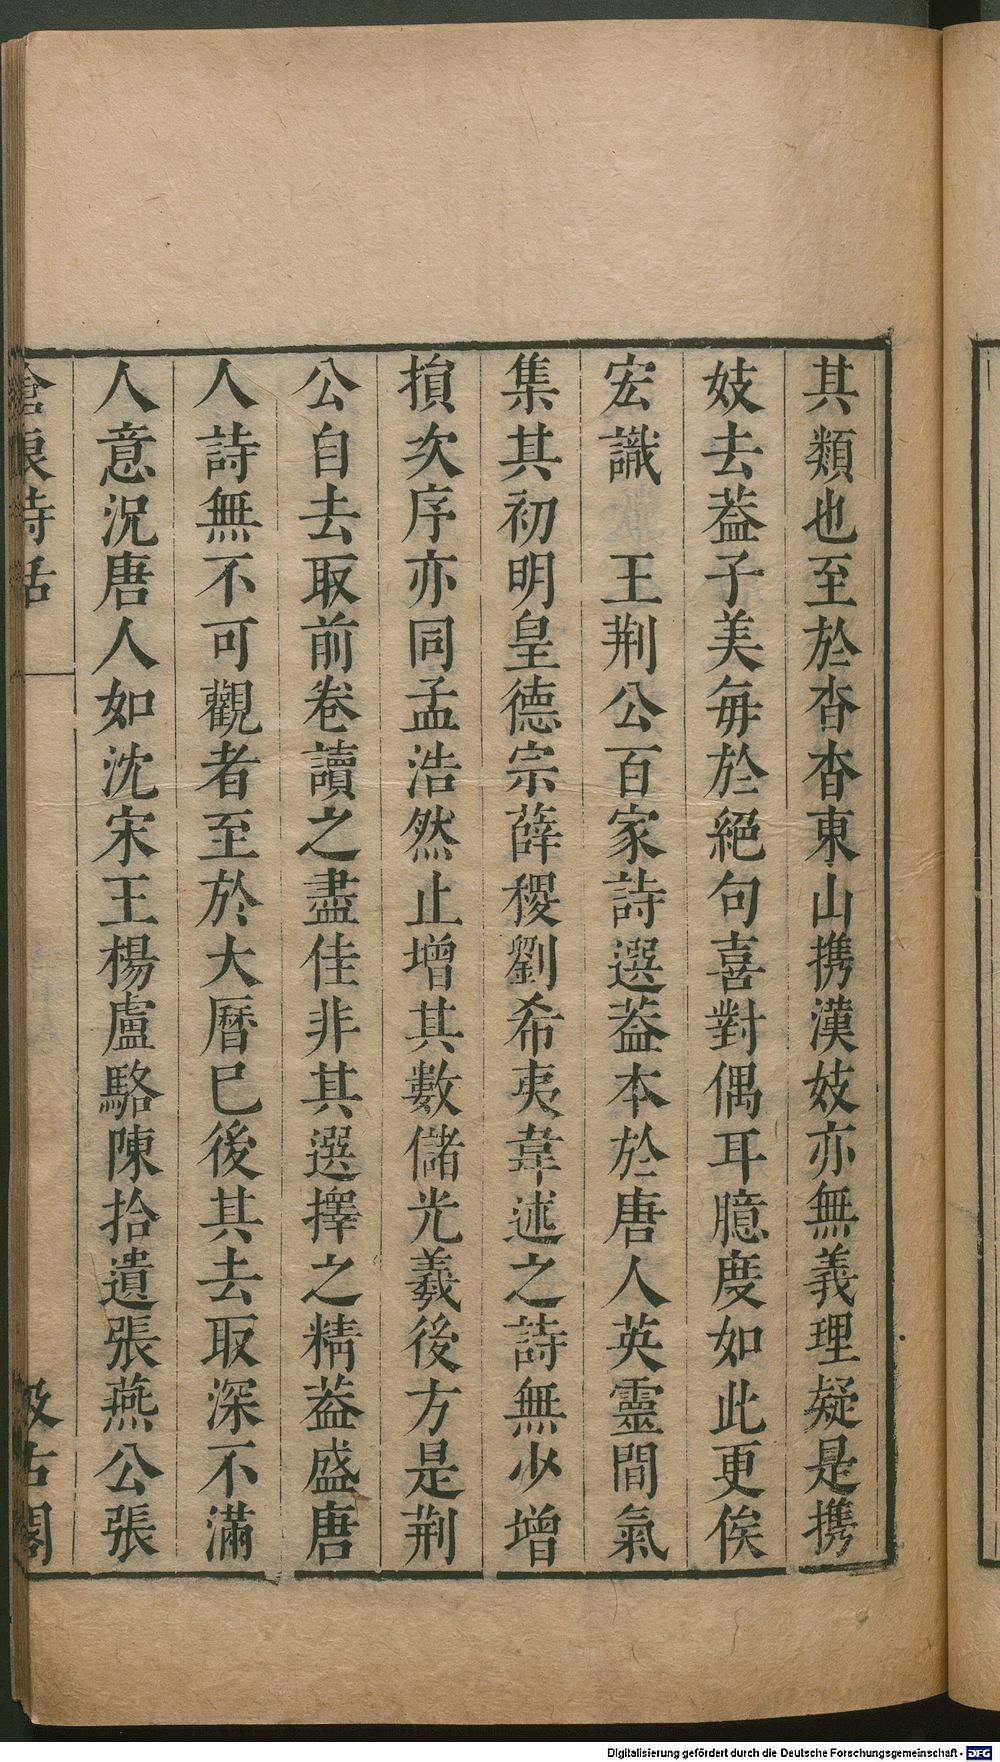 其類也至於杳杳東山携漢妓亦無義理疑是携
妓去葢子美毎於絕句喜對偶耳臆度如此更俟
宏識　王荆公百家詩選葢本於唐人英靈間氣
集其初明皇德宗薛稷劉希夷韋述之詩無少增
損次序亦同孟浩然止增其數儲光羲後方是荆
公自去取前卷讀之盡佳非其選擇之精葢盛唐
人詩無不可觀者至於大曆巳後其去取深不滿
人意況唐人如沈宋王楊盧駱陳拾遺張燕公張
滄浪詩話
汲古閣
Digitalisierung gefördert durch die Deutsche Forschungsgemeinschaft - DFG